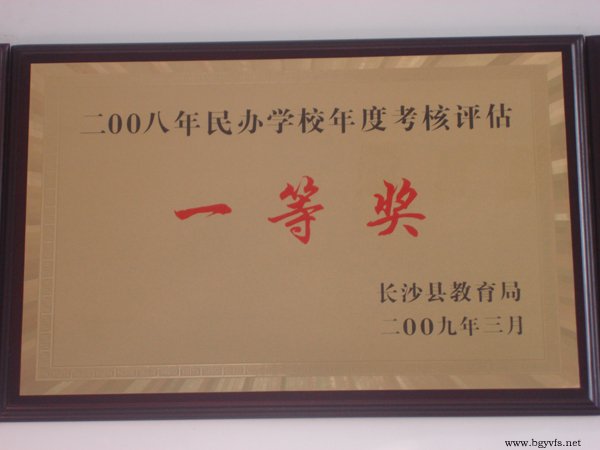 二00八年民办学校年度考核评估
一等奖
长沙县教育局
二00九年三月
www.bgyvfs.net